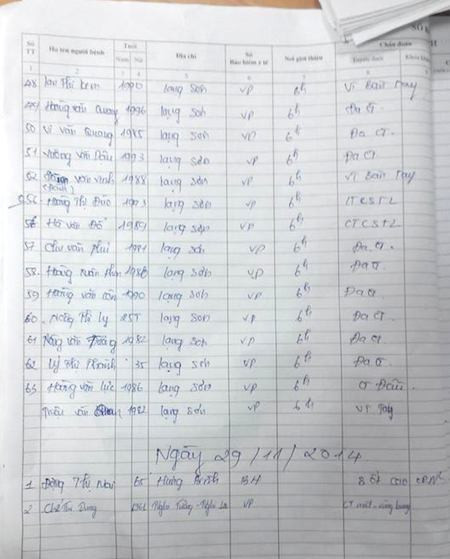 Số TT Họ tên người bệnh Tuổi Nam Nữ Địa chỉ Số Bảo hiểm y tế Nơi giới thiệu Chẩn đoán Tuyến dưới Khoa khám
1 2 3 4 5 6 7 8
48 1990 Lạng Sơn VP 6h VT bàn tay
49 Hoàng Văn Cương 1996 Lạng Sơn VP 6h Đa CT
50 Vi Văn Quang 1985 Lạng Sơn VP 6h Đa CT
51 Văn 1993 Lạng Sơn VP 6h Đa CT
52 Văn Vinh 1988 Lạng Sơn VP 6h VT Bàn Tay
Hoàng Thị Đức 1993 Lạng Sơn VP 6h CTCSTL
56 Hồ Văn Đổ 1989 Lạng Sơn VP 6h CTCSTL
57 Chu Văn Phui Lạng Sơn VP 6h Đa CT
58 Hoàng Xuân Lạng Sơn VP 6h Đa CT
59 Hoàng Văn 1990 Lạng Sơn VP 6h Đa CT
60 Nông Thị Ly 25T Lạng Sơn VP 6h Đa CT
61 Nông Văn 1982 Lạng Sơn VP 6h Đa CT
62 Lý Thị Thành 35 Lạng Sơn VP 6h Đa CT
63 Hoàng Văn Lực 1986 Lạng Sơn VP 6h CT Đầu
Triệu Văn 1982 Lạng Sơn VP 6h VT Tay
Ngày 29/11/2014
1 Đặng Thị Nai 65 Hưng Bình BH Sốt cao
2 Chế Thị Dung 1961 VP CT mắt - vùng lưng